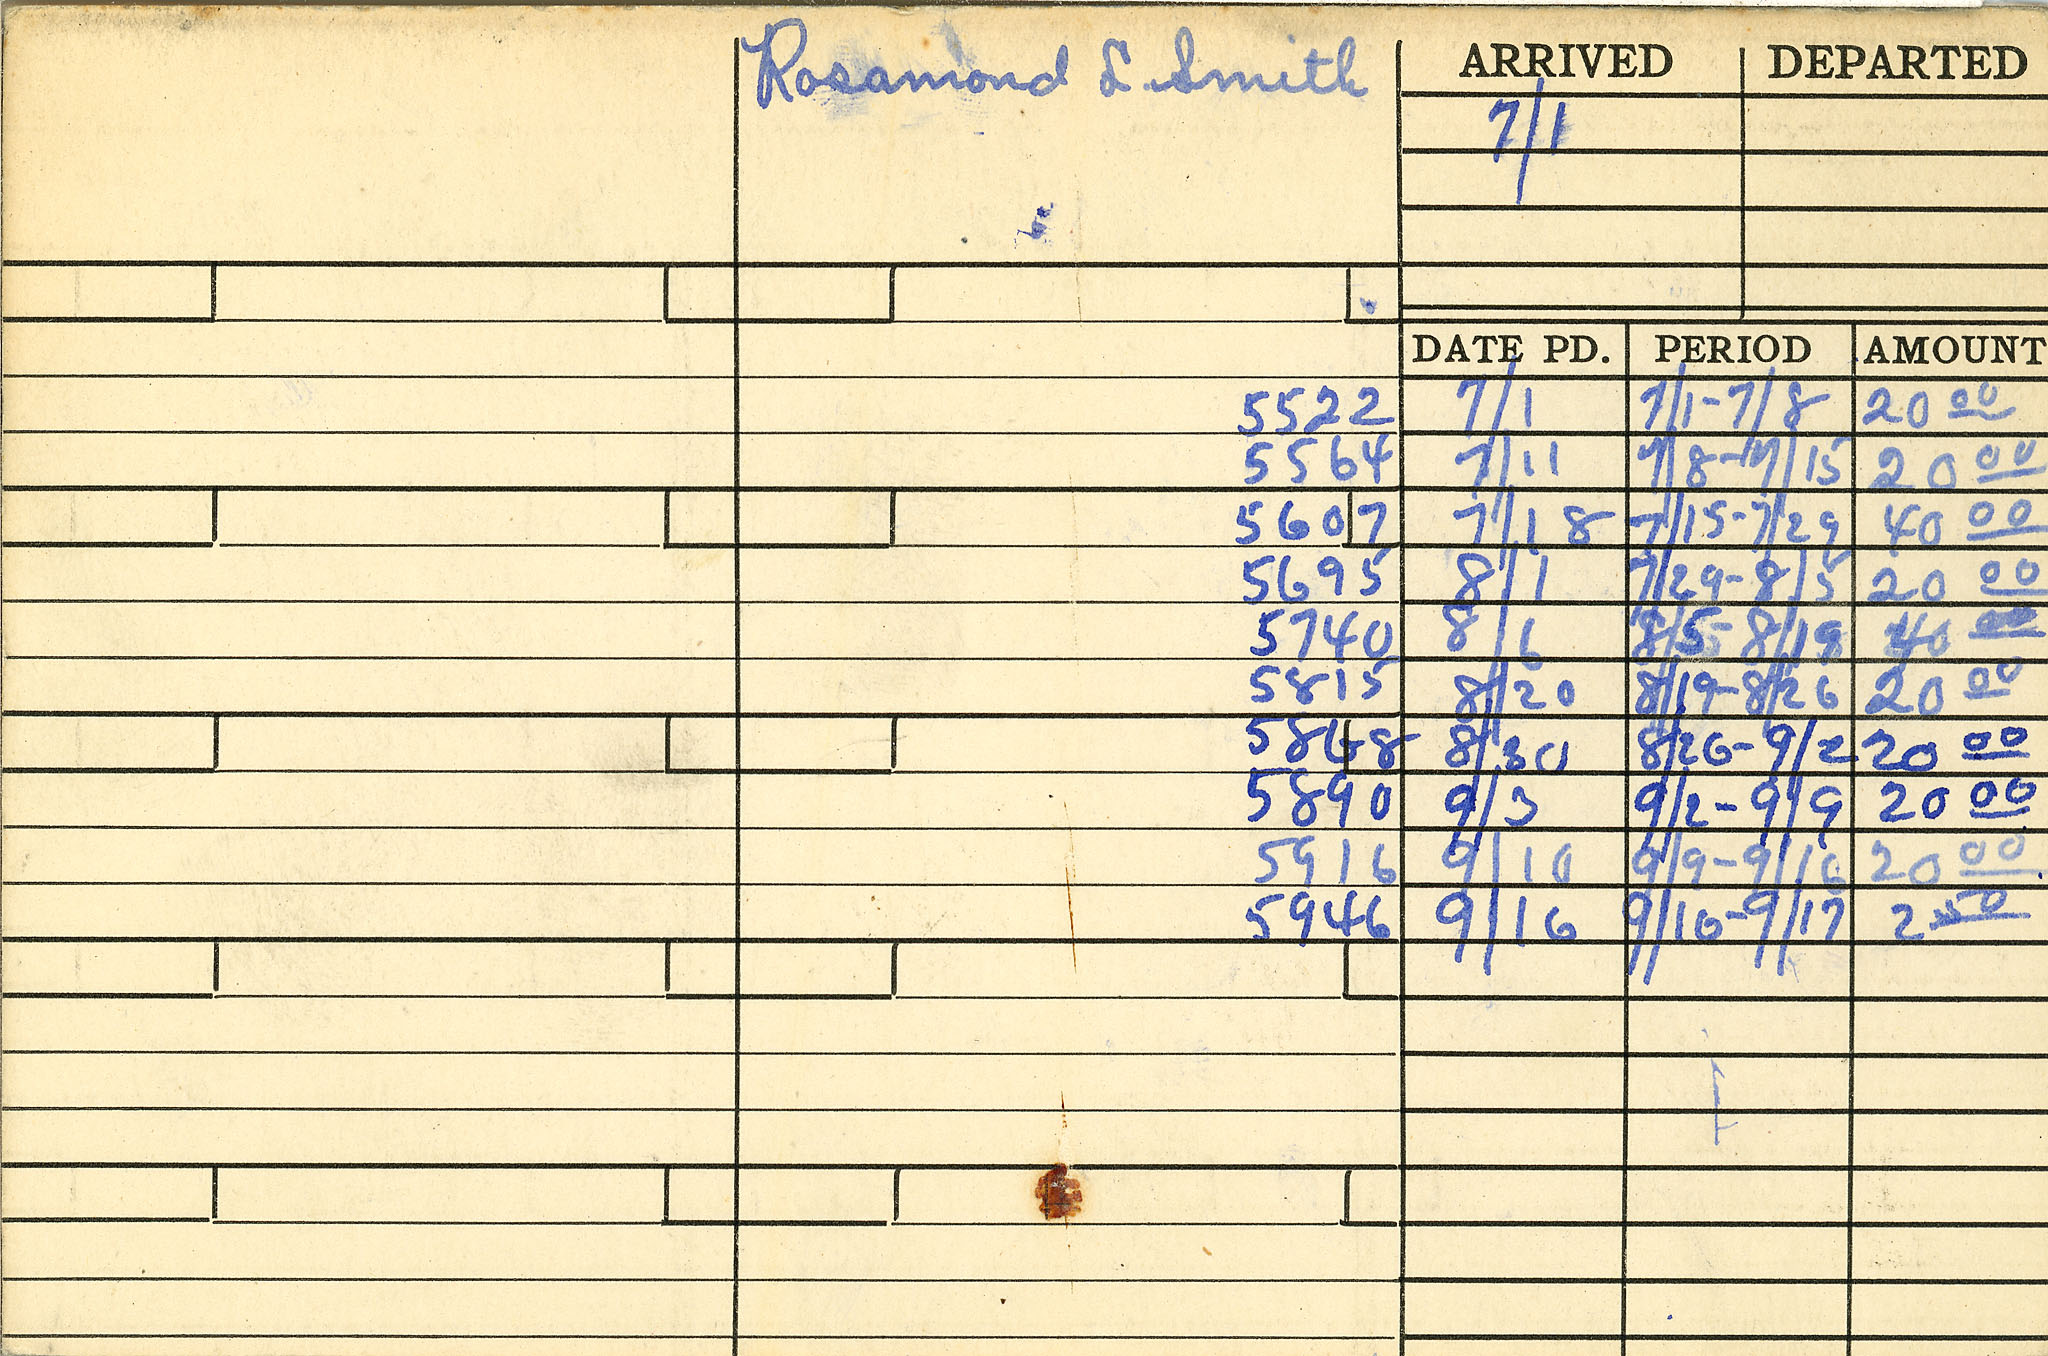 Rosamond L Smith
ARRIVED DEPARTED
7/1
DATE PD. PERIOD AMOUNT
5522 7/1 7/1-7/8 20 00
5564 7/11 7/8-7/15 20 00
5607 7/18 7/15-7/29 40 00
5695 8/1 7/29-8/5 20 00
5740 8/6 8/5-8/19 40 00
5815 8/20 8/19-8/26 20 00
5868 8/30 8/26-9/2 20 00
5890 9/3 9/2-9/9 20 00
5916 9/10 9/9-9/16 20 00
5946 9/16 9/16-9/17 2 50